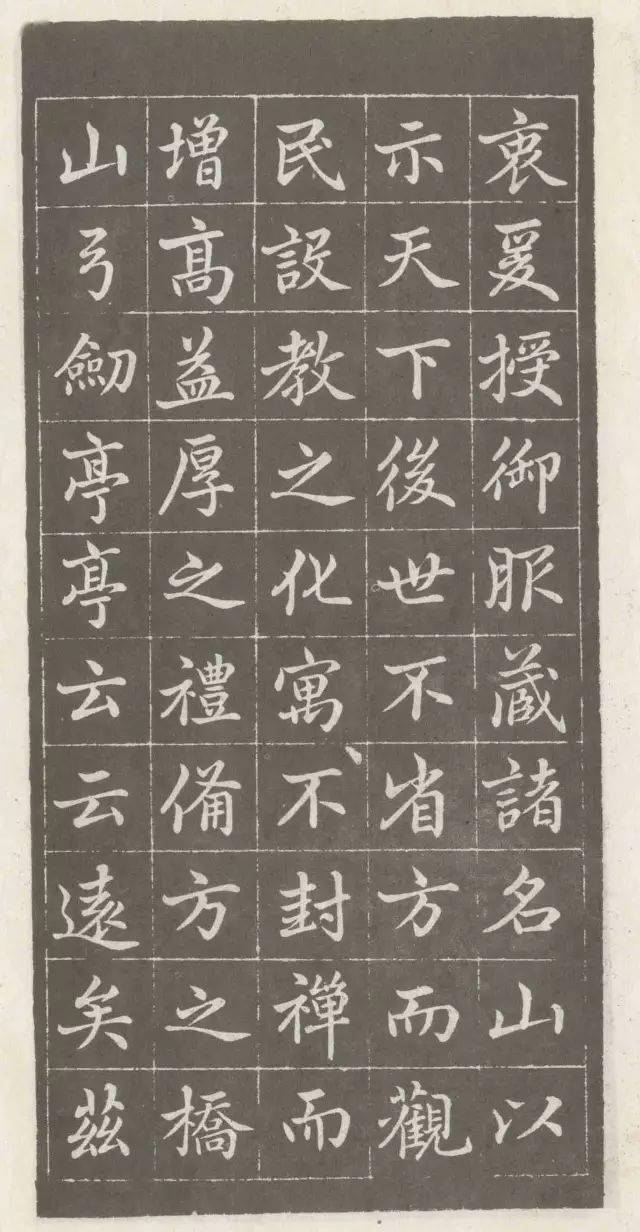 衷爰授御服藏諸名山以
示天下後世不省方而觀
民設教之化寓不封禪而
增髙益厚之禮備方之橋
山弓劒亭亭云云逺矣茲